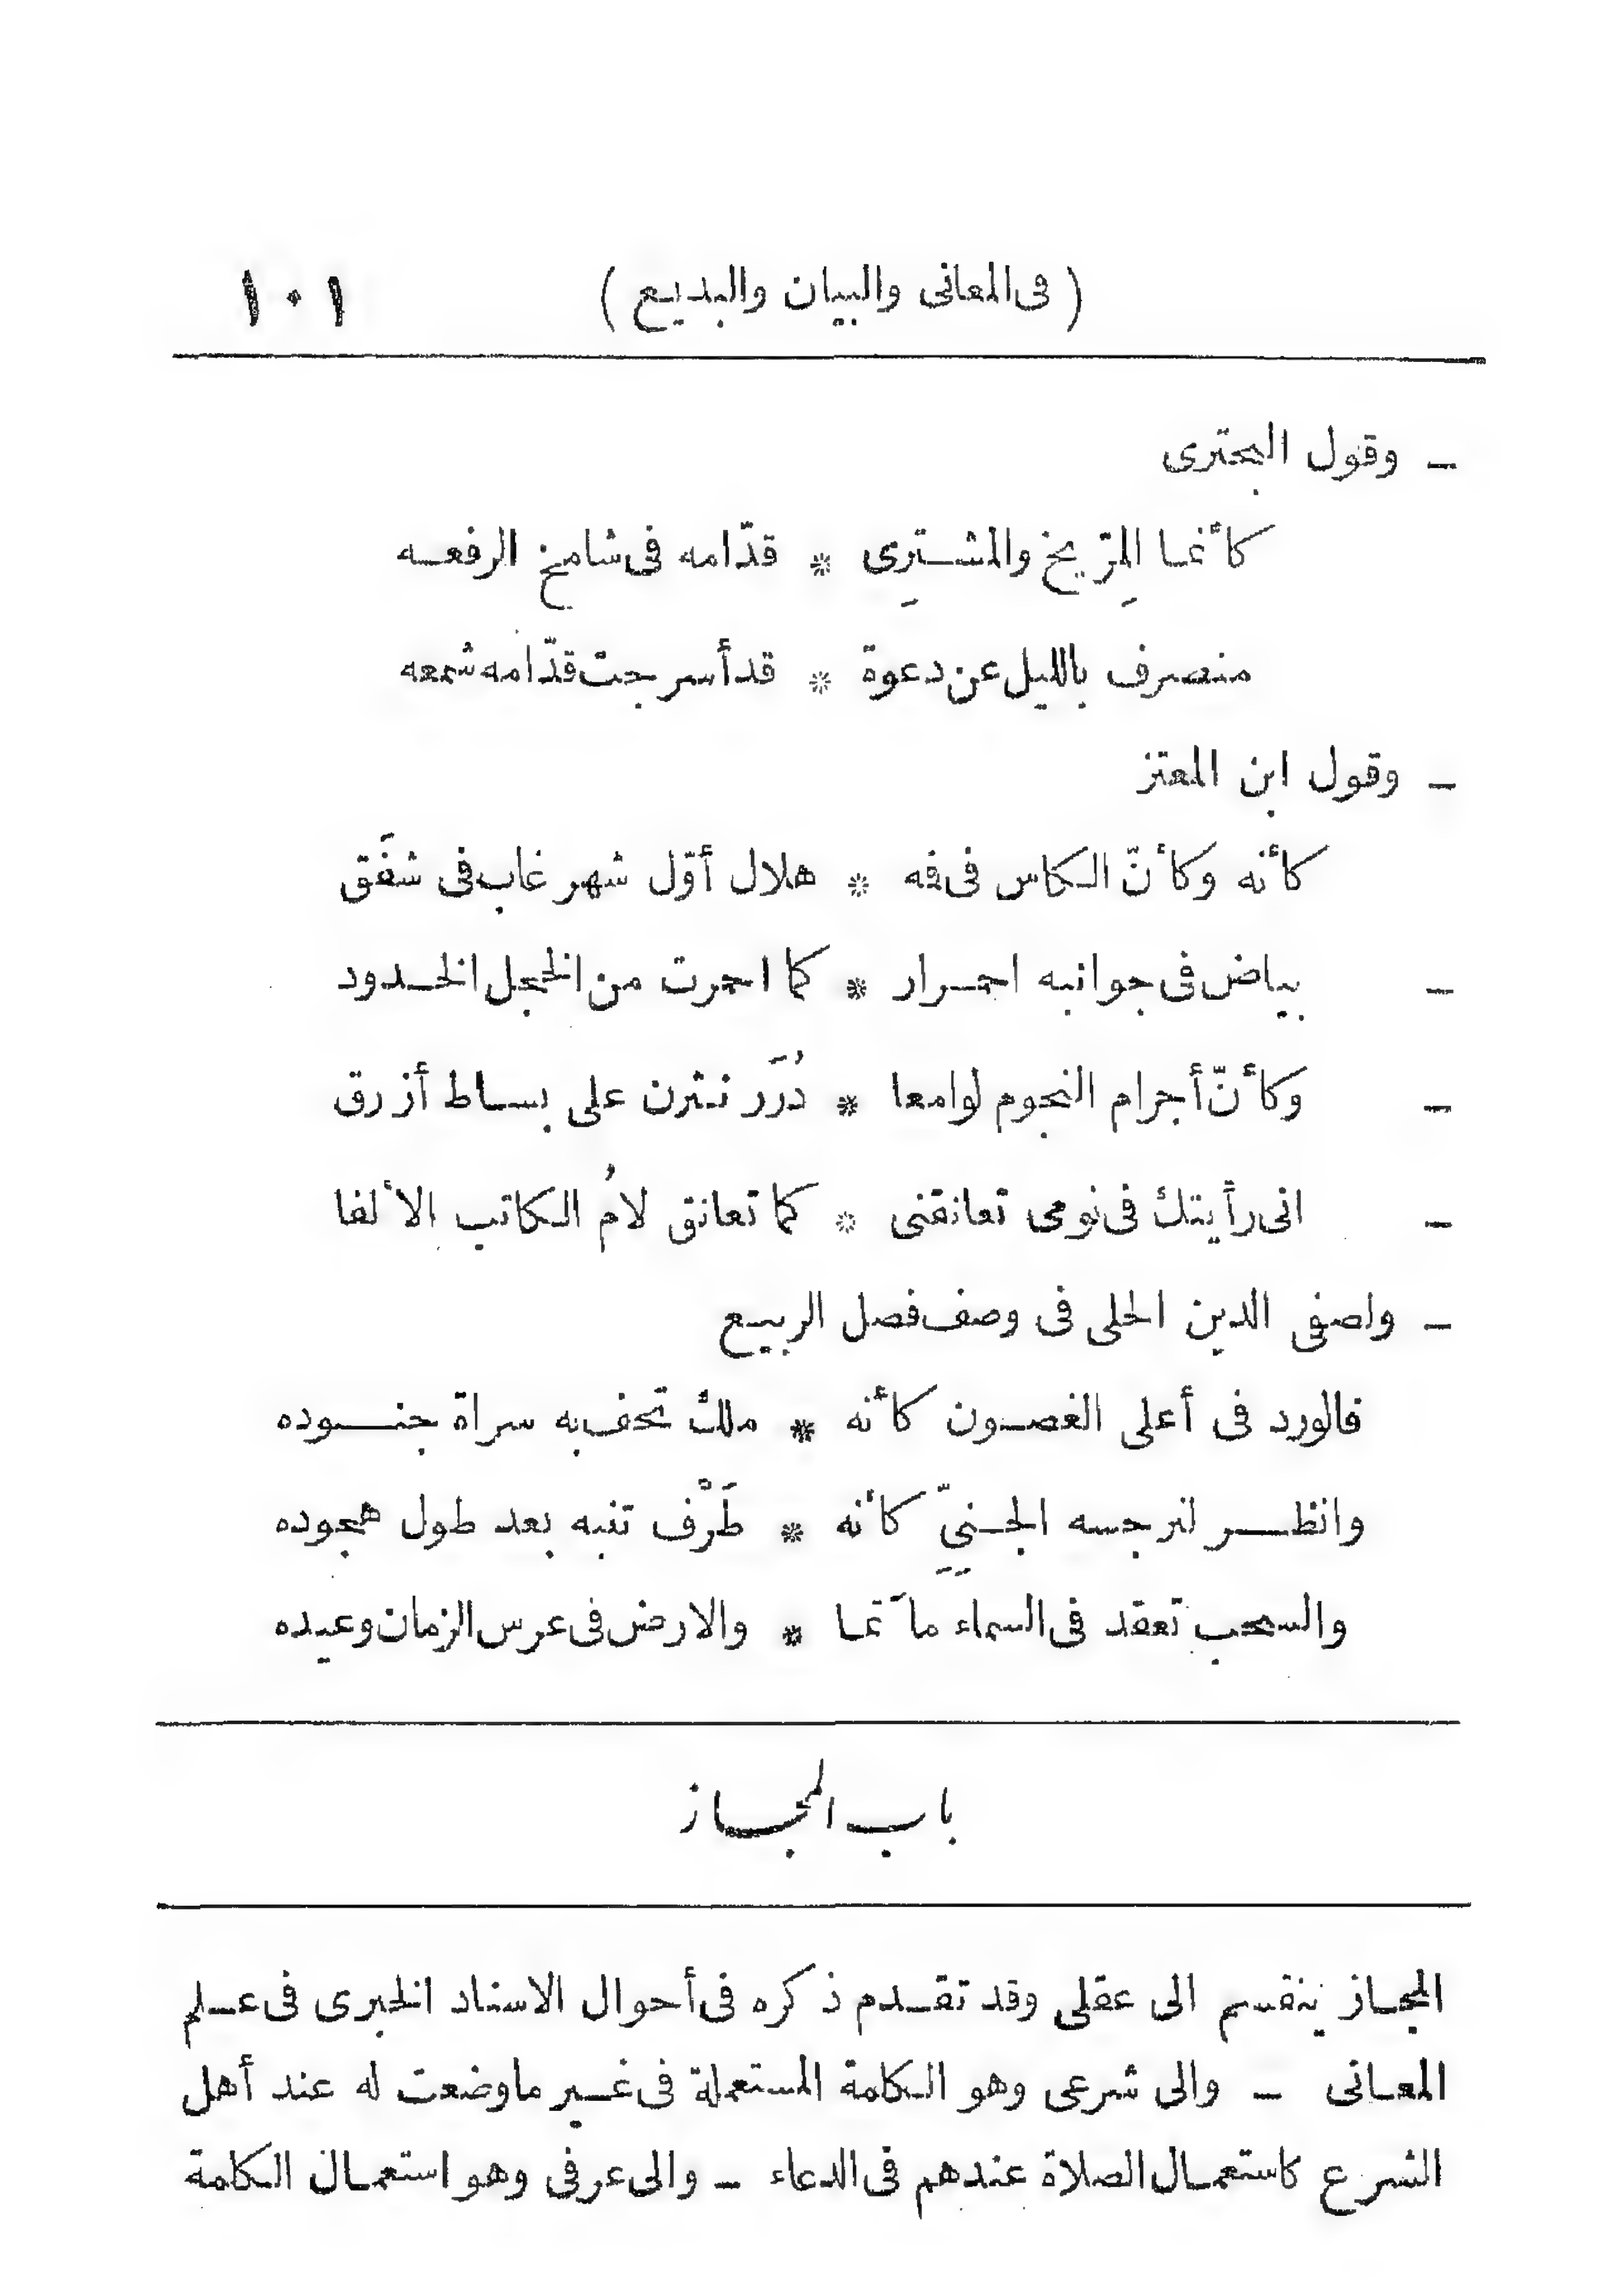 ( فى المعانى والبيان والبديع ) ١٠١
– وقول البحترى
كأنما المِرّيخ والمشترِى * قدّامه فى شامخ الرفعه
منصرف بالليل عن دعوة * قد أسرجت قدّامه شمعه
– وقول ابن المعتز
كأنه وكأنّ الكاس فى فه * هلال أوّل شهر غاب فى شفَق
– بياض فى جوانبه احمرار * كما احمرت من الخجل الخدود
– وكأنّ أجرام النجوم لوامعا * دُرَر نثرن على بساط أزرق
– انى رأيتك فى نومى تعانقنى * كما تعانق لامُ الكاتب الألفا
– واصفى الدين الحلى فى وصف فصل الربيع
فالورد فى أعلى الغصون كأنه * ملك تحف به سراة جنوده
وانظر لنرجسه الجنيِّ كأنه * طَرْف تنبه بعد طول هجوده
والسحب تعقد فى السماء مآتما * والارض فى عرس الزمان وعيده
باب المجاز
المجاز ينقسم الى عقلى وقد تقدم ذكره فى أحوال الاسناد الخبرى فى علم
المعانى – والى شرعى وهو الكلمة المستعملة فى غير ما وضعت له عند أهل
الشرع كاستعمال الصلاة عندهم فى الدعاء – والى عرفى وهو استعمال الكلمة